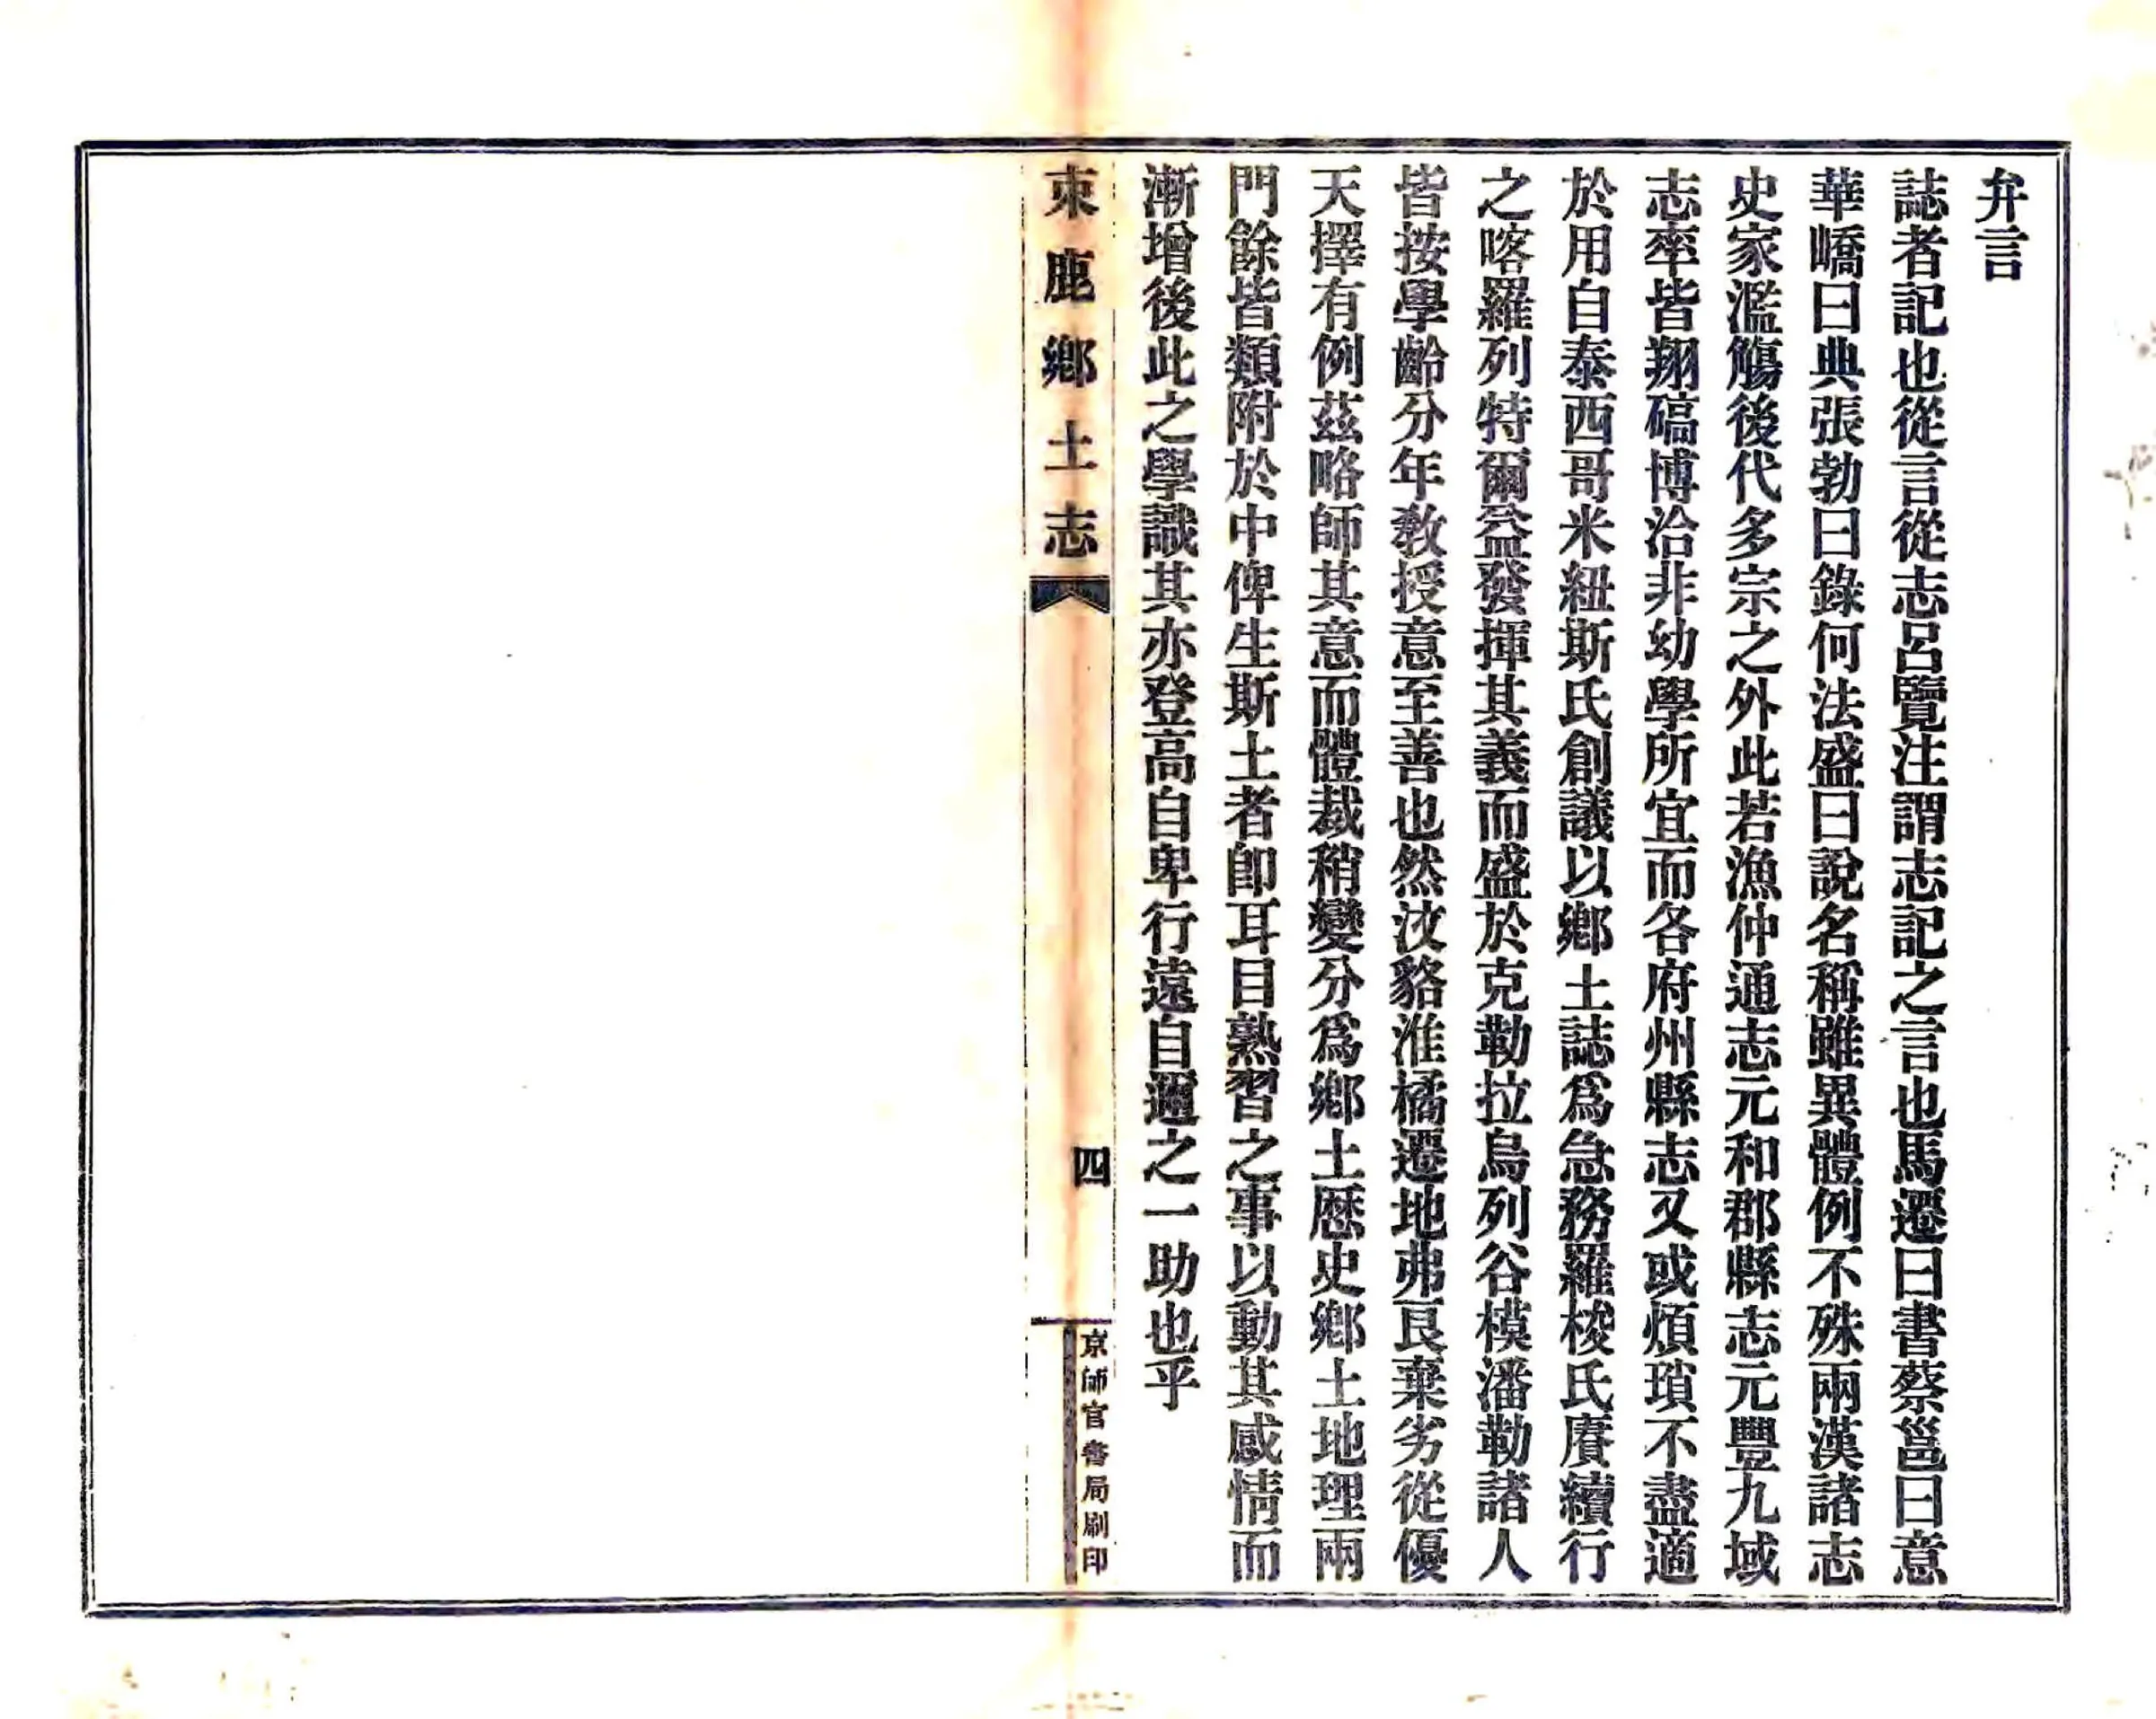 弁言
誌者記也從言從志呂覽注謂志記之言也馬遷曰書蔡邕曰意
華嶠曰典張勃曰錄何法盛曰說名稱雖異體例不殊兩漢諸志
史家濫觴後代多宗之外此若漁仲通志元和郡縣志元豐九域
志率皆翔碻博洽非幼學所宜而各府州縣志又或煩瑣不盡適
於用自泰西哥米紐斯氏創議以鄉土誌爲急務羅梭氏賡續行
之喀羅列特爾益發揮其義而盛於克勒拉烏列谷模潘勒諸人
皆按學齡分年教授意至善也然汶貉淮橘遷地弗良棄劣從優
天擇有例茲略師其意而體裁稍變分爲鄉土歷史鄉土地理兩
門餘皆類附於中俾生斯土者卽耳目熟習之事以動其感情而
漸增後此之學識其亦登高自卑行遠自邇之一助也乎
束鹿鄉土志
四
京師官書局刷印